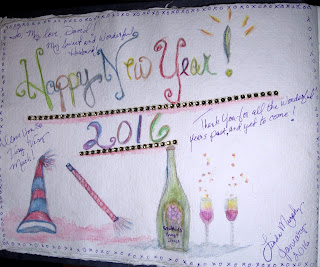 To My Love
My Sweet and Wonderful
Husband
Happy New Year!
2016
I Love You So
Very
Much
Thank You for all the Wonderful
years past, and yet to come!
January
2016